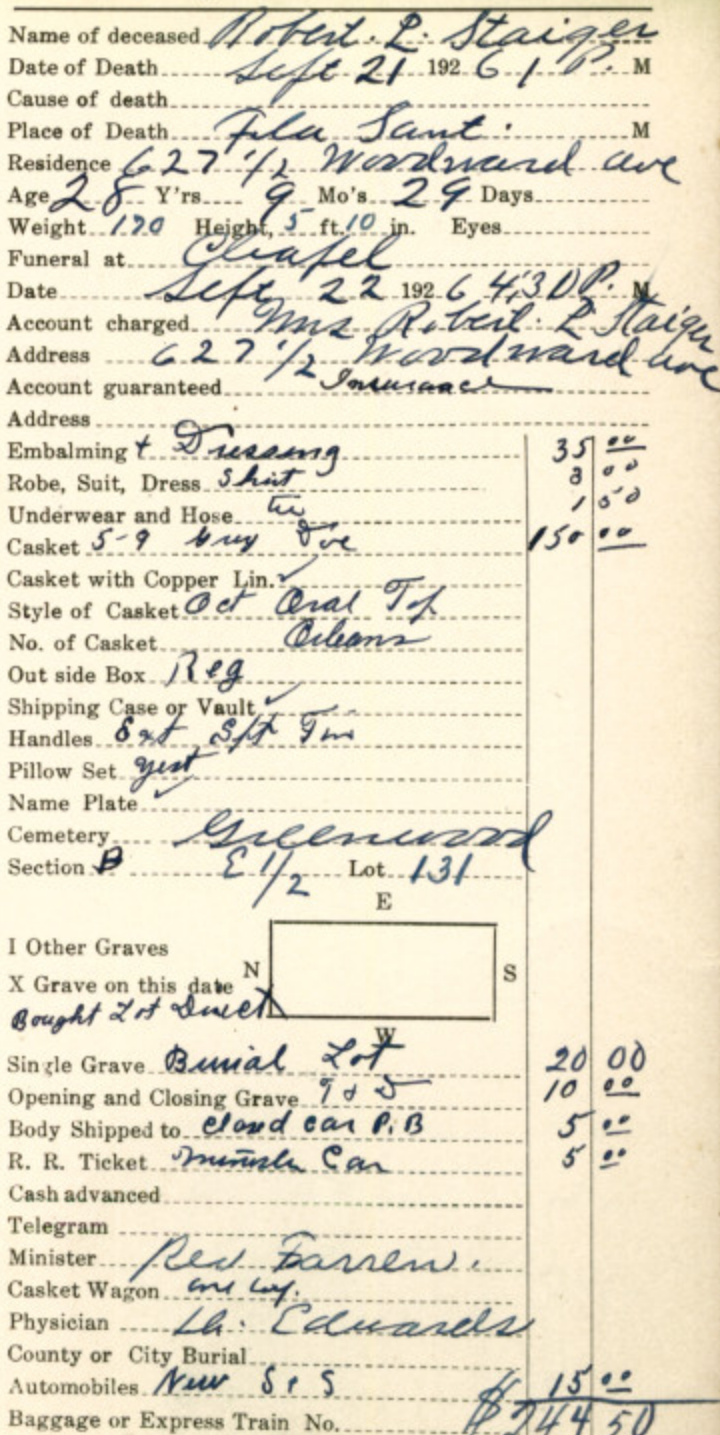 Name of deceased Robert. L. Staiger
Date of Death Sept 21 1926 1 P. M
Cause of death
Place of Death Fla Sant. M
Residence 627 1/2 Woodward ave
Age 28 Y'rs 9 Mo's 29 Days
Weight 170 Height, 5 ft. 10 in. Eyes
Funeral at Chapel
Date Sept 22 1926 4,30 P. M
Account charged Mrs Robert. L Staiger
Address 627 1/2 Woodward ave
Account guaranteed Insurance
Address
Embalming + Dressing 35 00
Robe, Suit, Dress Shirt 3 00
Underwear and Hose tie 1 50
Casket 5-9 Grey 150 00
Casket with Copper Lin. ✓
Style of Casket Oct Oval Top
No. of Casket Orleans
Out side Box Reg
Shipping Case or Vault ✓
Handles Ext
Pillow Set
Name Plate ✓
Cemetery Greenwood
Section B E 1/2 Lot 131
E
I Other Graves
N S
X Grave on this date
Bought Lot Direct
W
Single Grave Burial Lot 20 00
Opening and Closing Grave 10 00
Body Shipped to closed car P. B 5 00
R. R. Ticket Minister Car 5 00
Cash advanced
Telegram
Minister Rev Farren.
Casket Wagon
Physician Dr. Edwards
County or City Burial
Automobiles New S & S 15 00
Baggage or Express Train No. $244 50